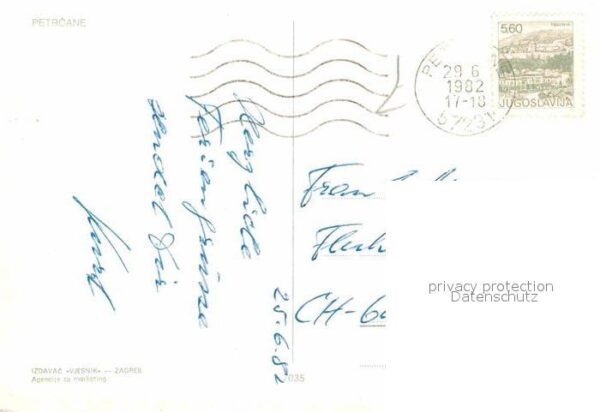 PETRČANE
5,60
JUGOSLAVIJA
29.6
1982
17-18
57231
Herzliche
Feriengrüsse
sendet Dir
25.6.82
CH-6
privacy protection
Datenschutz
IZDAVAČ «VJESNIK» — ZAGREB
Agencija za marketing
035